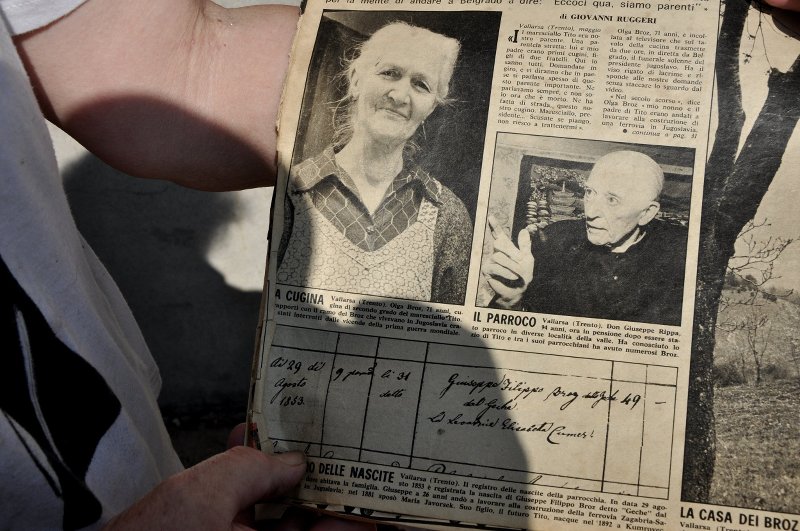 per la mente di andare a Belgrado a dire: "Eccoci qua, siamo parenti"
di GIOVANNI RUGGERI
Vallarsa (Trento), maggio
«Il maresciallo Tito era no-
stro parente. Una pa-
rentela stretta: lui e mio
padre erano primi cugini, fi-
gli di due fratelli. Qui lo
sanno tutti. Domandate in
giro, e vi diranno che in pae-
se si parlava spesso di que-
sto parente importante. Ne
parliamo sempre, e non so-
lo ora che è morto. Ne ha
fatta di strada, questo no-
stro cugino. Maresciallo, pre-
sidente... Scusate se piango,
non riesco a trattenermi».
Olga Broz, 71 anni, è incol-
lata al televisore che sul ta-
volo della cucina trasmette
da due ore, in diretta da Bel-
grado, il funerale solenne del
presidente jugoslavo. Ha il
viso rigato di lacrime e ri-
sponde alle nostre domande
senza staccare lo sguardo dal
video.
«Nel secolo scorso», dice
Olga Broz «mio nonno e il
padre di Tito erano andati a
lavorare alla costruzione di
una ferrovia in Jugoslavia.
● continua a pag. 31
A CUGINA Vallarsa (Trento). Olga Broz, 71 anni, cu-
gina di secondo grado del maresciallo Tito.
apporti con il ramo dei Broz che vivevano in Jugoslavia era-
stati interrotti dalle vicende della prima guerra mondiale.
IL PARROCO Vallarsa (Trento). Don Giuseppe Rippa,
94 anni, ora in pensione dopo essere sta-
to parroco in diverse località della valle. Ha conosciuto lo
zio di Tito e tra i suoi parrocchiani ha avuto numerosi Broz.
29 di
Agosto
1853.
9
li 31
detto
Giuseppe Filippo Broz
49 –
Elisabetta
O DELLE NASCITE Vallarsa (Trento). Il registro delle nascite della parrocchia. In data 29 ago-
sto 1853 è registrata la nascita di Giuseppe Filippo Broz detto "Geche" dal
abitava la famiglia. Giuseppe a 26 anni andò a lavorare alla costruzione della ferrovia Zagabria-Sa-
in Jugoslavia; nel 1881 sposò Maria Javorsek. Suo figlio, il futuro Tito, nacque nel 1892 a
LA CASA DEI BROZ
Vallarsa (Trento)